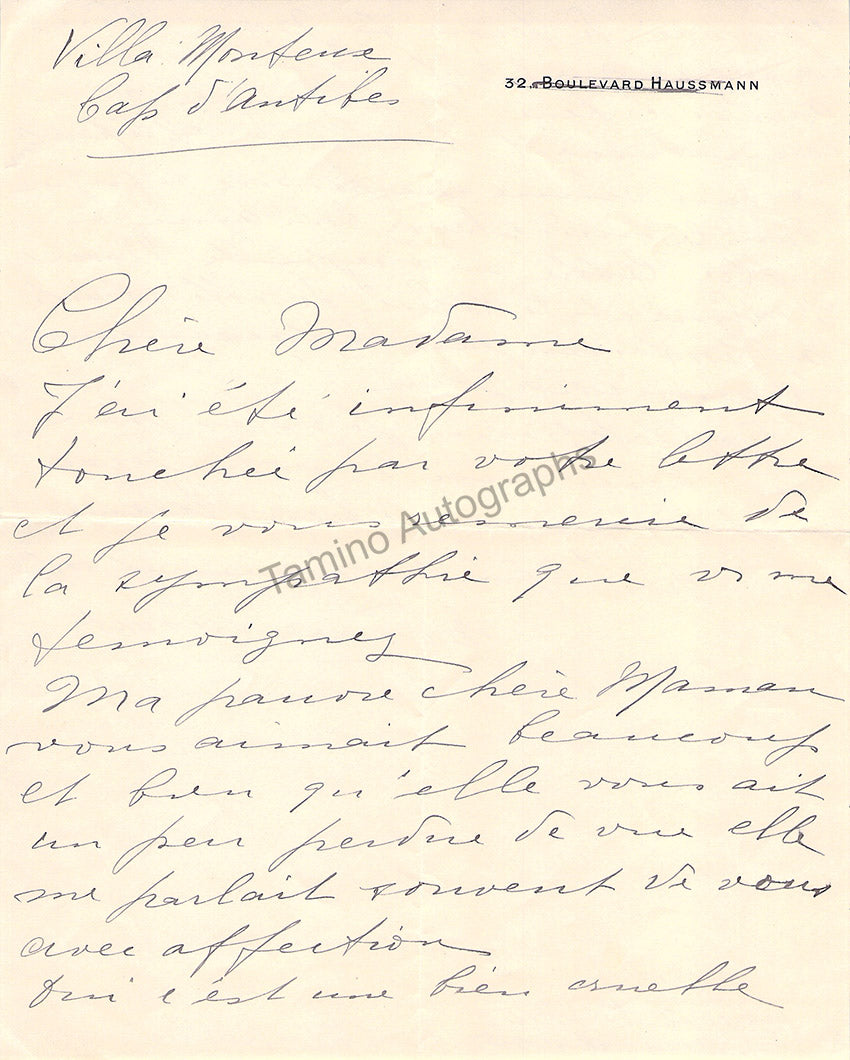 Villa Monteux
Cap d'Antibes
32. Boulevard Haussmann
Chère Madame
J'ai été infiniment
touchée par votre lettre
et je vous remercie de
la sympathie que v me
temoignez
Ma pauvre chère Maman
vous aimait beaucoup
et bien qu'elle vous ait
un peu perdue de vue elle
me parlait souvent de vous
avec affection
Oui c'est une bien cruelle
Tamino Autographs